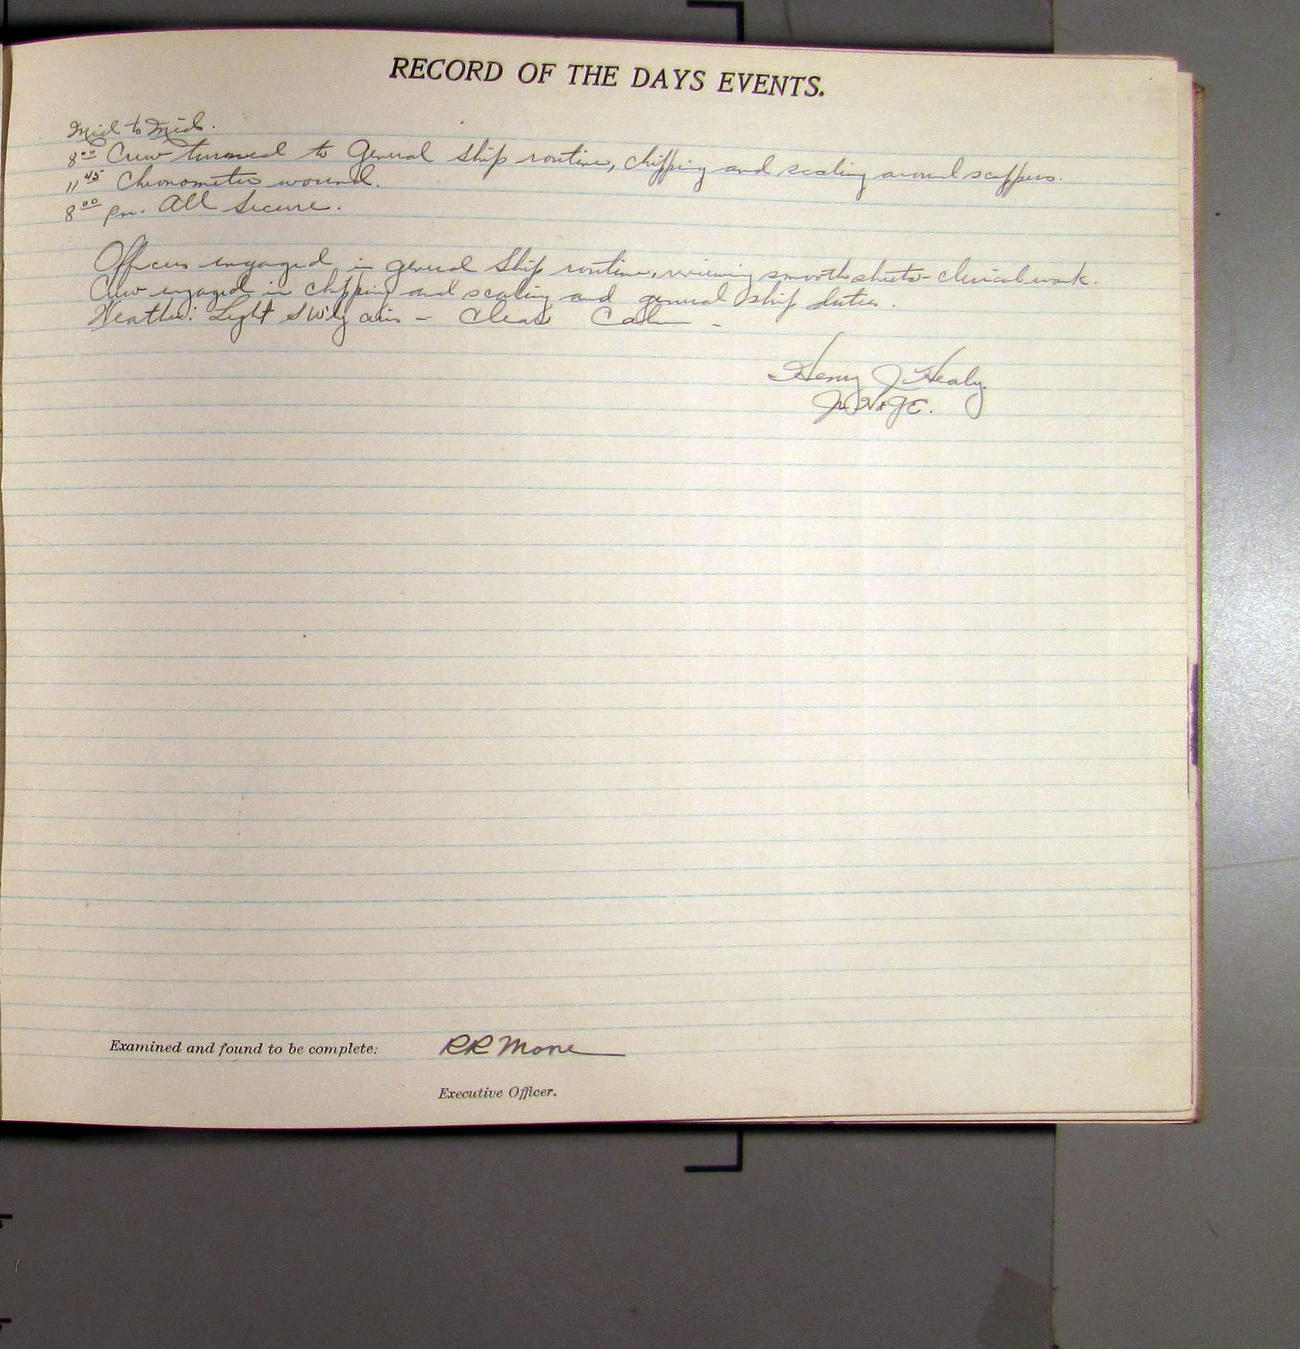 RECORD OF THE DAYS EVENTS.
Mid to Mid.
8⁰⁰ Crew turned to general ship routine, chipping and scaling around scuppers.
11⁴⁵ Chronometer wound.
8⁰⁰ pm. All Secure.
Officers engaged in general ship routine, reviewing smooth sheets - clerical work.
Crew engaged in chipping and scaling and general ship duties.
Weather: Light SW'ly airs - Clear Calm -
Henry J. Healy.
Jr. H. & G. E.
Examined and found to be complete: RR Moore
Executive Officer.